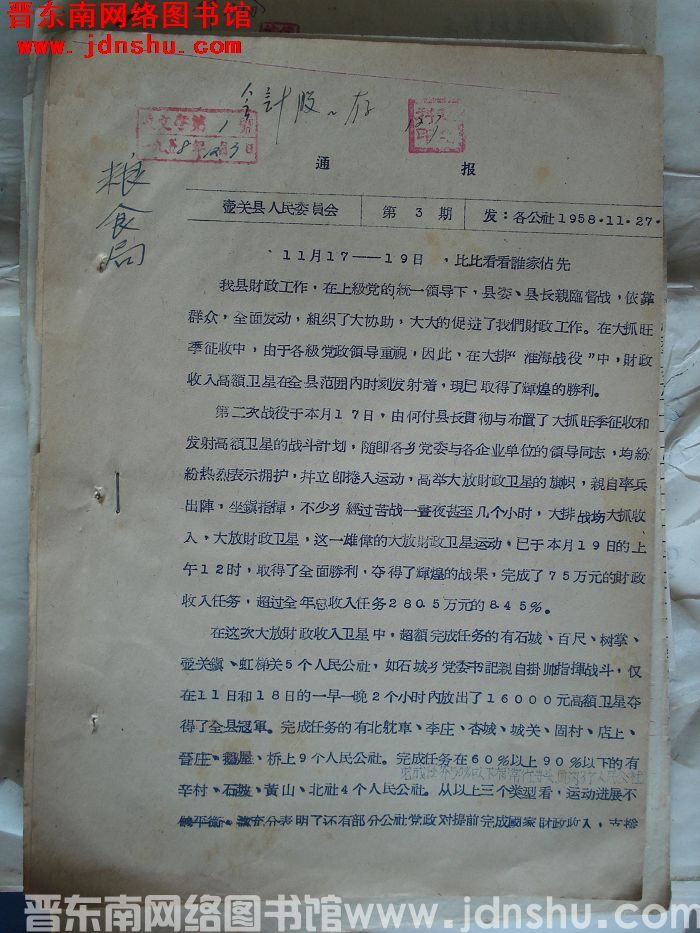 晋东南网络图书馆
www.jdnshu.com
会計股 存
收文字第1號
一九五8年12月3日
粮食局
通 报
壶关县人民委員会 第3期 发：各公社1958·11·27·
11月17——19日，比比看看誰家佔先
我县財政工作，在上級党的統一領导下，县委、县长親臨督战，依靠
群众，全面发动，組织了大协助，大大的促进了我們財政工作。在大抓旺
季征收中，由于各級党政領导重視，因此，在大排“淮海战役”中，財政
收入高額卫星在全县范囲内时刻发射着，現已取得了輝煌的勝利。
第二次战役于本月17日，由何付县长貫彻与布置了大抓旺季征收和
发射高額卫星的战斗計划，随即各乡党委与各企业单位的領导同志，均紛
紛热烈表示拥护，幷立即捲入运动，高举大放財政卫星的旗帜，親自率兵
出陣，坐鎭指揮，不少乡經过苦战一晝夜甚至几个小时，大排战場大抓收
入，大放財政卫星，这一雄偉的大放財政卫星运动，已于本月19日的上
午12时，取得了全面勝利，夺得了輝煌的战果，完成了75万元的財政
收入任务，超过全年总收入任务280.5万元的8.45%。
在这次大放財政收入卫星中，超額完成任务的有石城、百尺、树掌、
壶关鎭、虹梯关5个人民公社，如石城乡党委书記親自掛帅指揮战斗，仅
在11日和18日的一早一晚2个小时內放出了16000元高額卫星夺
得了全县冠軍。完成任务的有北耽車、李庄、杏城、城关、固村、店上、
晉庄、鵝屋、桥上9个人民公社。完成任务在60%以上90%以下的有
辛村、石坡、黄山、北社4个人民公社。从以上三个类型看，运动进展不
够平衡、充分表明了还有部分公社党政对提前完成國家財政收入，支援
晋东南网络图书馆 www.jdnshu.com